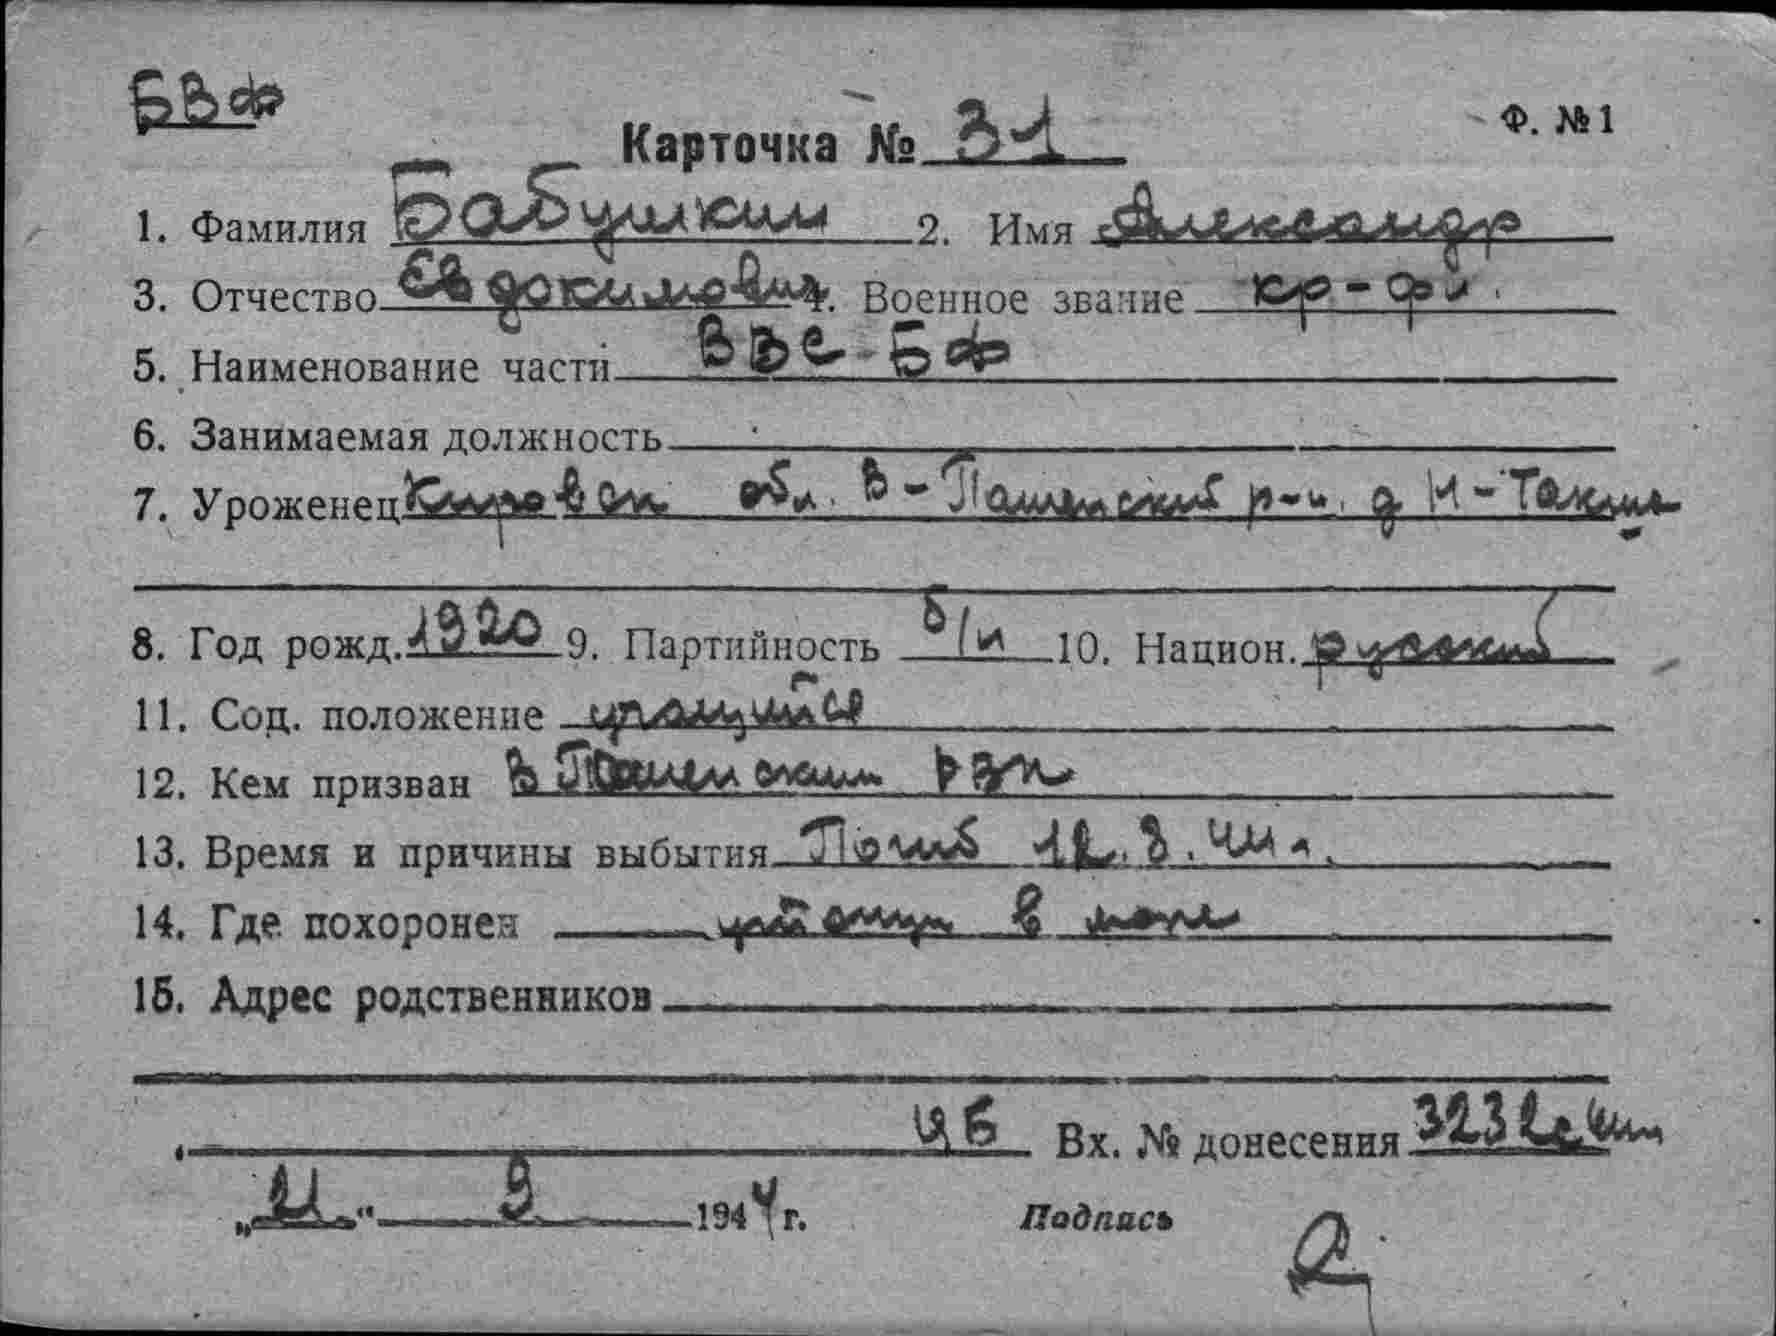 БВФ
Карточка № 31
Ф. №1
1. Фамилия Бабушкин 2. Имя Александр
3. Отчество Евдокимович 4. Военное звание кр-фл.
5. Наименование части ВВС БФ
6. Занимаемая должность
7. Уроженец Кировск. обл. В-Полянский р-н. д
8. Год рожд. 1920 9. Партийность б/п 10. Национ. русский
11. Соц. положение
12. Кем призван В Полянским РВК
13. Время и причины выбытия Погиб
14. Где похоронен в море
15. Адрес родственников
Вх. № донесения
„ " 1944 г. Подпись